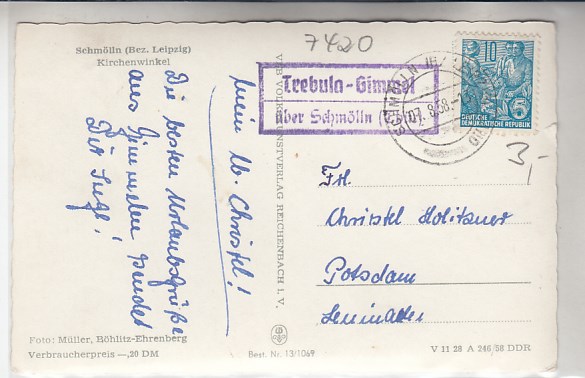 7420
Schmölln (Bez. Leipzig)
Kirchenwinkel
Trebula-Gimmel
über Schmölln (
SCHMÖLLN
07. 8.58-
10
5
DEUTSCHE
DEMOKRATISCHE REPUBLIK
3,-
mein lb. Christel!
Die besten Urlaubsgrüße
aus Gimmel sendet
Dir Inge!
Frl.
Christel
Potsdam
VEB VOLKSKUNSTVERLAG REICHENBACH I. V.
Foto: Müller, Böhlitz-Ehrenberg
Verbraucherpreis —,20 DM
Best. Nr. 13/1069
V 11 28 A 246/58 DDR